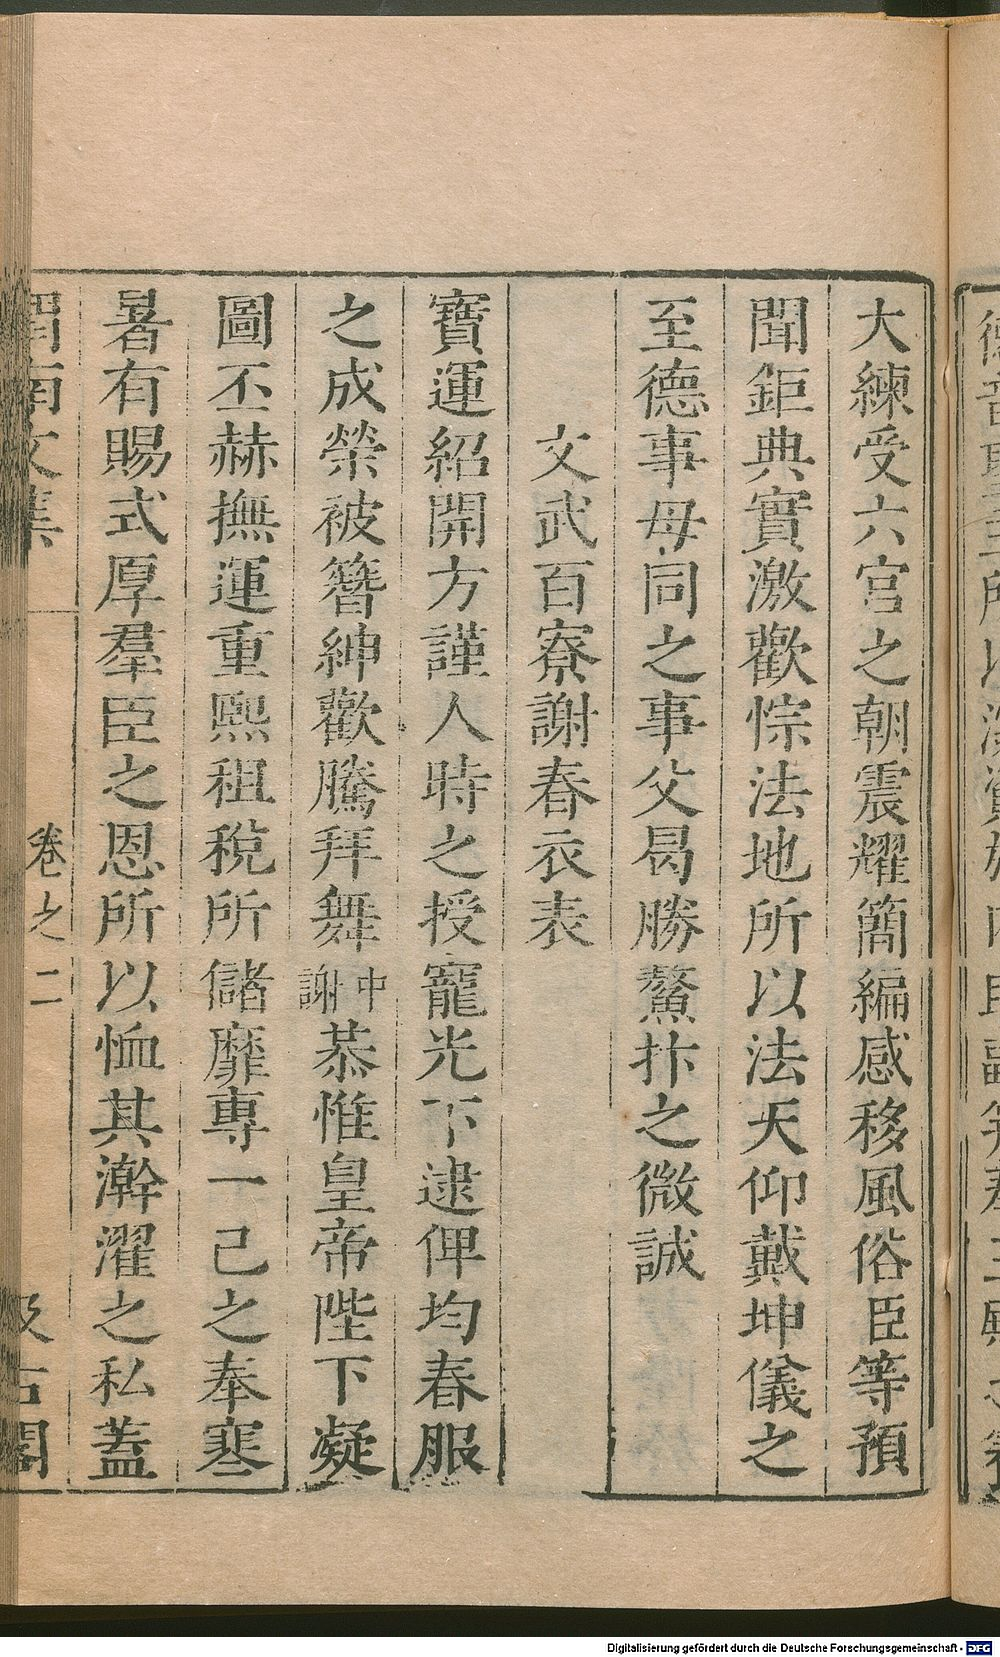 大練受六宮之朝震耀簡編感移風俗臣等預
聞鉅典實激歡悰法地所以法天仰戴坤儀之
至德事母同之事父曷勝鰲抃之微誠
文武百寮謝春衣表
寶運紹開方謹人時之授寵光下逮俾均春服
之成榮被簪紳歡騰拜舞中謝恭惟皇帝陛下凝
圖丕赫撫運重熙租稅所儲靡專一己之奉寒
暑有賜式厚羣臣之恩所以恤其澣濯之私蓋
渭南文集 卷之二 汲古閣
Digitalisierung gefördert durch die Deutsche Forschungsgemeinschaft - DFG